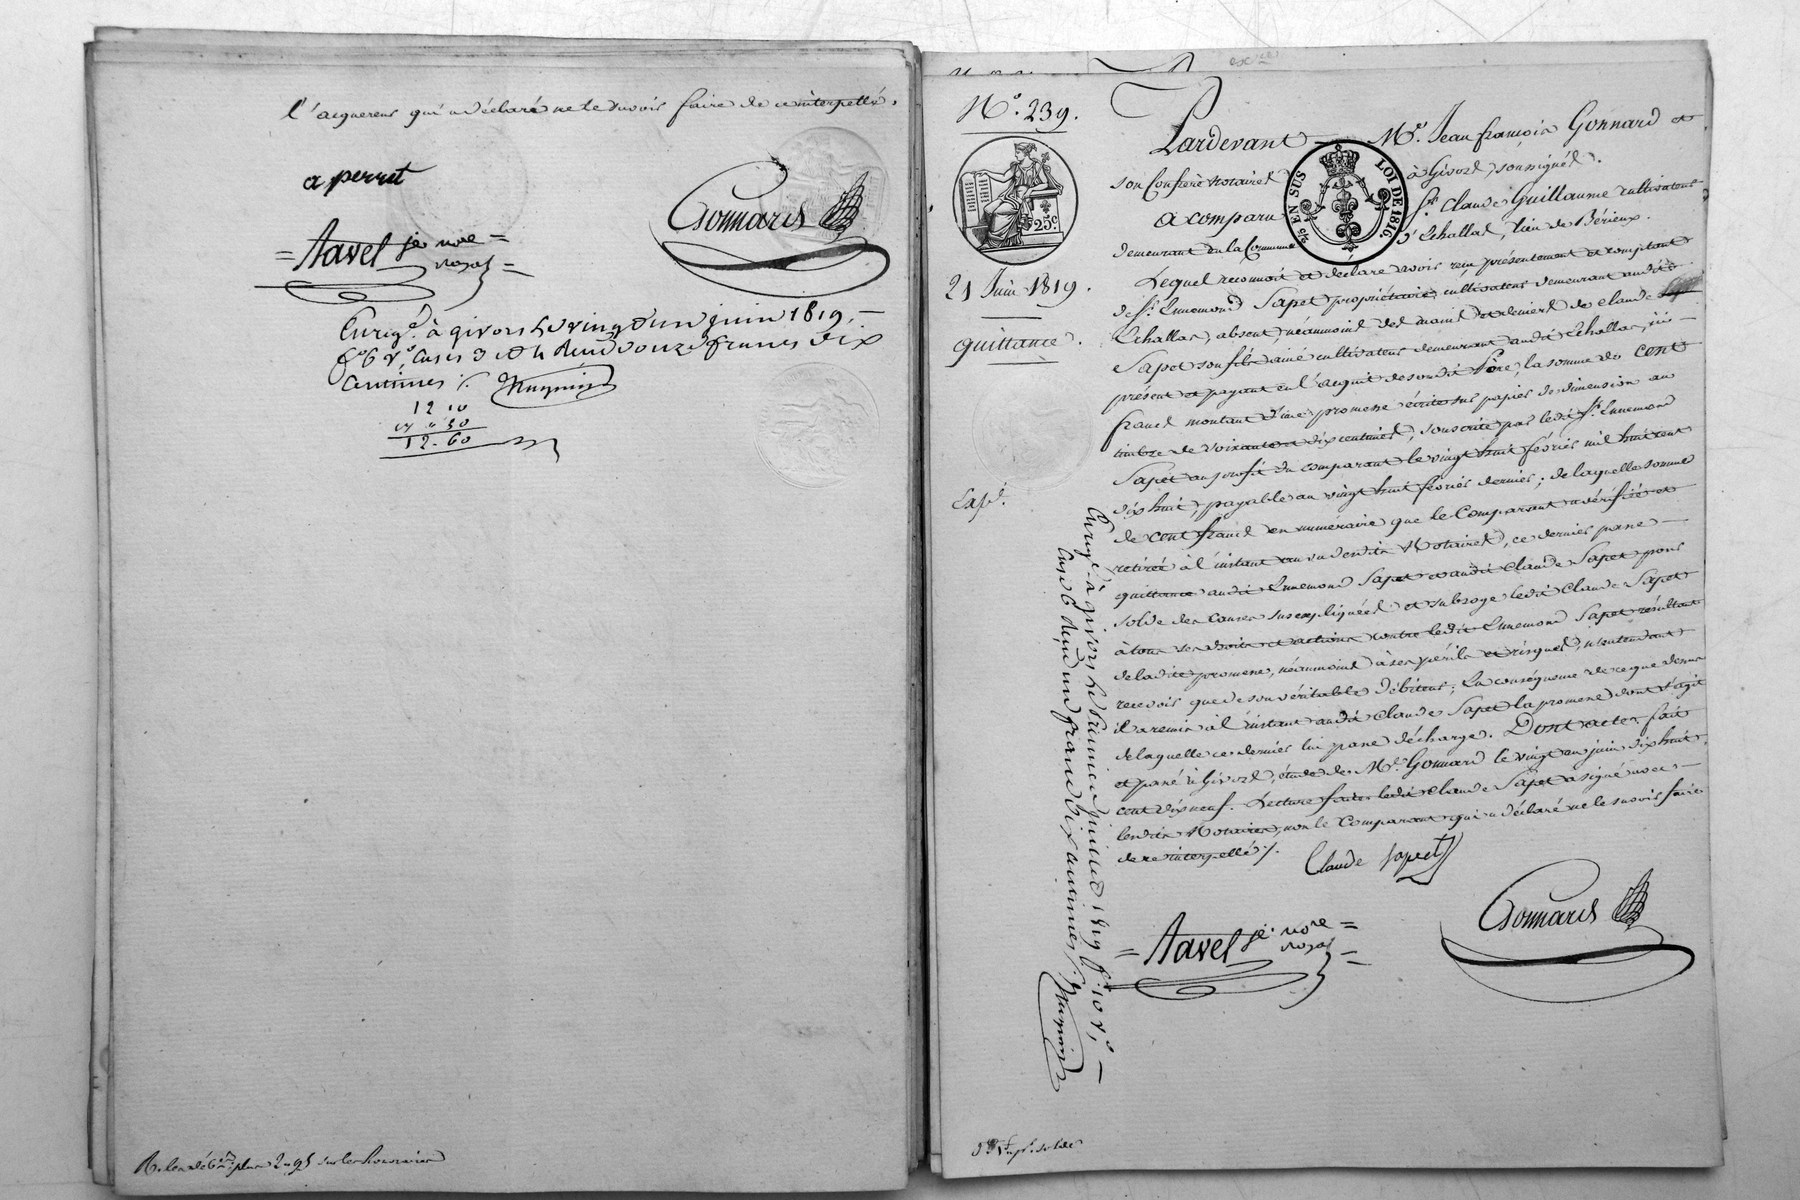 l'acquereur qui a déclaré ne le savoir faire de ce interpellé.
a perret
Gonnard
= Favel je. nore =
royal =
Enrigé à givors le vingt un juin 1819,
fo 6 Vo, Cases 3 et 4 reçu douze francs dix
centimes /.
12 10
1 2. 60
No. 239.
25 c.
21 Juin 1819.
quittance.
Exp.
EN SUS
LOI DE 1816
Pardevant Me. Jean françois Gonnard et
son Confrère Notaires à Givors, soussignés.
A comparu Sr. Claude Guillaume cultivateur
demeurant en la Commune d'Echallas, lieu de Bérieux.
Lequel reconnoit et déclare avoir reçu présentement et comptant
de Sr. Ennemond Sapet propriétaire cultivateur demeurant audit
Echallas, absent, néanmoins des mains et deniers de claude
Sapet son fils ainé cultivateur demeurant audit Echallas, ici
présent et payant en l'acquit de son dit Père, la somme de cent
francs montant d'une promesse écrite sur papier de dimension au
timbre de soixante et dix centimes, souscrite par ledit Sr. Ennemond
Sapet au profit du comparant le vingt huit février mil huit cent
dix huit, payable au vingt huit février dernier; de laquelle somme
de cent francs en numéraire que le Comparant a vérifiée et
retirée à l'instant au vu desdits Notaires, ce dernier passe
quittance audit Ennemond Sapet et audit Claude Sapet pour
solde des causes susexpliquées et subroge ledit Claude Sapet
à tous ses droits et actions contre ledit Ennemond Sapet résultant
de ladite promesse, néanmoins à ses périls et risques, n'entendant
recevoir que de son véritable débiteur; En conséquence de ce que dessus
il a remis à l'instant audit Claude Sapet la promesse dont s'agit
de laquelle ce dernier lui passe décharge. Dont acte, fait
et passé à Givors, étude de Me. Gonnard le vingt un juin dix huit
cent dix neuf. Lecture faite ledit Claude Sapet a signé avec
lesdits Notaires, non le Comparant qui a déclaré ne le savoir faire
de ce interpellé /.
Claude Sapet
= Favel je. nore =
royal =
Gonnard
Enrigé à givors le premier juillet 1819 fo. 10 Vo,
Case 6 reçu un franc dix centimes /.